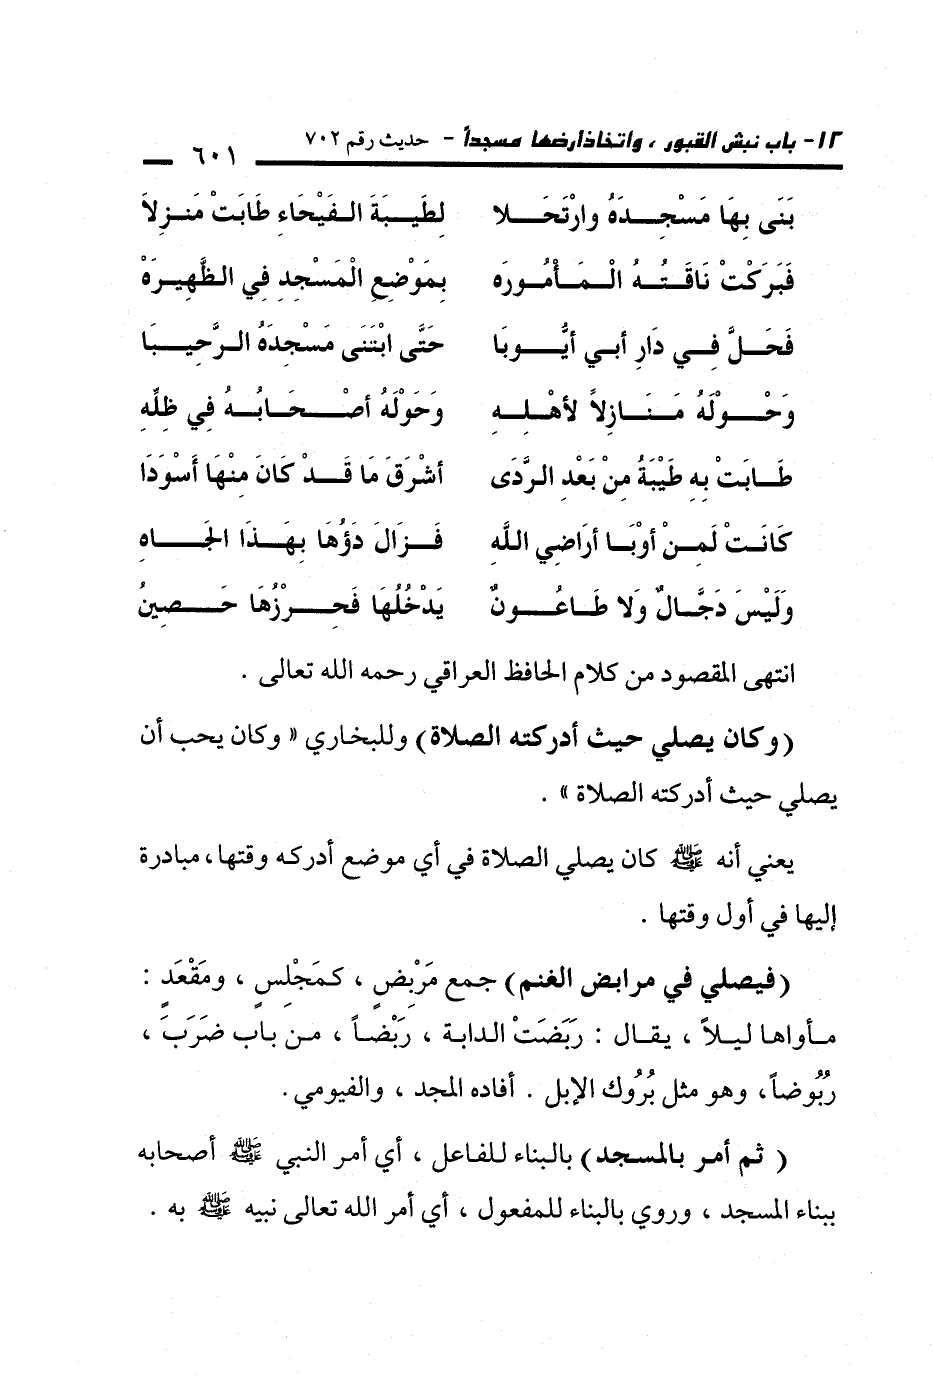 ١٢- باب نبش القبور ، واتخاذ أرضها مسجداً - حديث رقم ٧٠٢
٦٠١
بَنَى بِهَا مَسْجِدَهُ وارْتَحَلا لِطَيِبَةَ الفَيْحَاءِ طَابَتْ مَنزِلاَ
فَبَرَكَتْ نَاقَتُهُ الْمَأْمُورَه بِمَوْضِعِ الْمَسْجِدِ فِي الظَّهِيرَهْ
فَحَلَّ فِي دَارِ أبي أيُّوبَا حَتَّى ابْتَنَى مَسْجِدَهُ الرَّحِيبَا
وَحْولَهُ مَنَازِلاً لأهْلِهِ وَحَوْلَهُ أصْحَابُهُ فِي ظِلِّهِ
طَابَتْ بِهِ طَيْبَةُ مِنْ بَعْدِ الرَّدَى أشْرَقَ مَا قَدْ كَانَ مِنْهَا أسْوَدَا
كَانَتْ لَمِنْ أوْبَا أرَاضِي اللَّهِ فَزَالَ دَؤُهَا بِهَذَا الجَاهِ
وَلَيْسَ دَجَّالٌ وَلا طَاعُونٌ يَدْخُلُهَا فَحِرْزُهَا حَصِينُ
انتهى المقصود من كلام الحافظ العراقي رحمه الله تعالى .
(وكان يصلي حيث أدركته الصلاة) وللبخاري « وكان يحب أن
يصلي حيث أدركته الصلاة » .
يعني أنه ﷺ كان يصلي الصلاة في أي موضع أدركه وقتها، مبادرة
إليها في أول وقتها .
(فيصلي في مرابض الغنم) جمع مَرْبِضٍ ، كمَجْلِسٍ ، ومَقْعَدٍ :
مأواها ليلاً ، يقال : رَبَضَتْ الدابة ، رَبْضاً ، من باب ضَرَبَ ،
رُبُوضاً، وهو مثل بُرُوك الإبل . أفاده المجد ، والفيومي.
( ثم أمر بالمسجد) بالبناء للفاعل ، أي أمر النبي ﷺ أصحابه
ببناء المسجد ، وروي بالبناء للمفعول ، أي أمر الله تعالى نبيه ﷺ به .